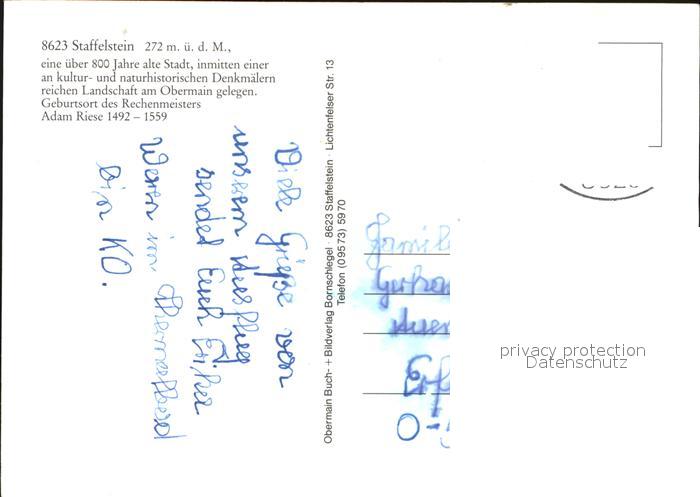 8623 Staffelstein 272 m. ü. d. M.,
eine über 800 Jahre alte Stadt, inmitten einer
an kultur- und naturhistorischen Denkmälern
reichen Landschaft am Obermain gelegen.
Geburtsort des Rechenmeisters
Adam Riese 1492 – 1559
Viele Grüße von
unserm Ausflug
sendet Euch
Waren im Thermalbad
bin KO.
Obermain Buch- + Bildverlag Bornschlegel · 8623 Staffelstein · Lichtenfelser Str. 13
Telefon (09573) 5970
Famil
O-
privacy protection
Datenschutz